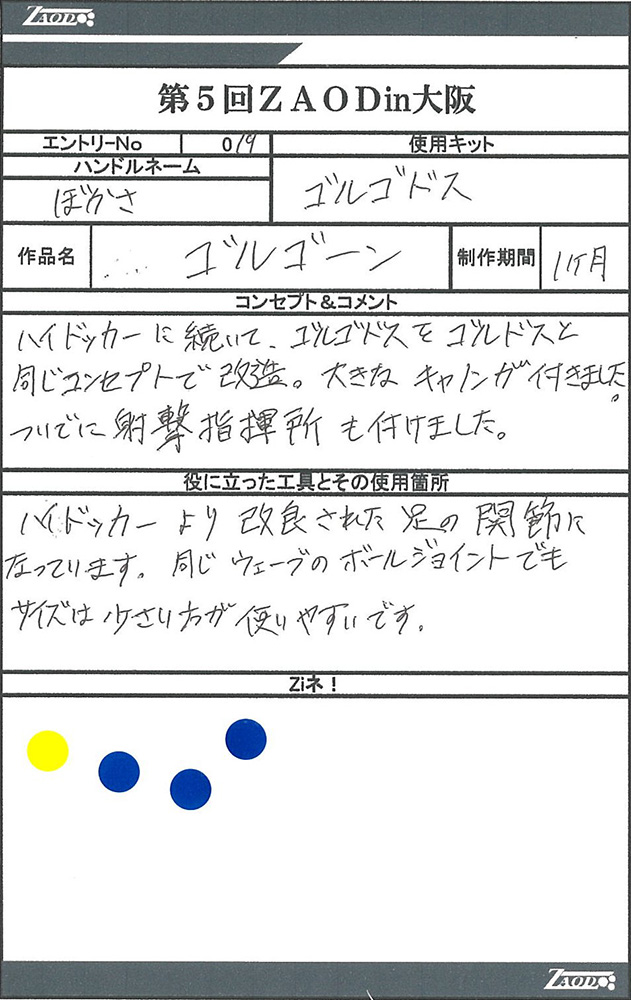 ZAOD
第5回ZAODin大阪
エントリーNo 019 使用キット
ハンドルネーム
ぼかさ ゴルゴドス
作品名 ゴルゴーン 制作期間 1ヶ月
コンセプト&コメント
ハイドッカーに続いて、ゴルゴドスをゴルドスと
同じコンセプトで改造。大きなキャノンが付きました。
ついでに射撃指揮所も付けました。
役に立った工具とその使用箇所
ハイドッカーより改良された足の関節に
なっています。同じウェーブのボールジョイントでも
サイズは少さい方が使いやすいです。
Ziネ!
ZAOD